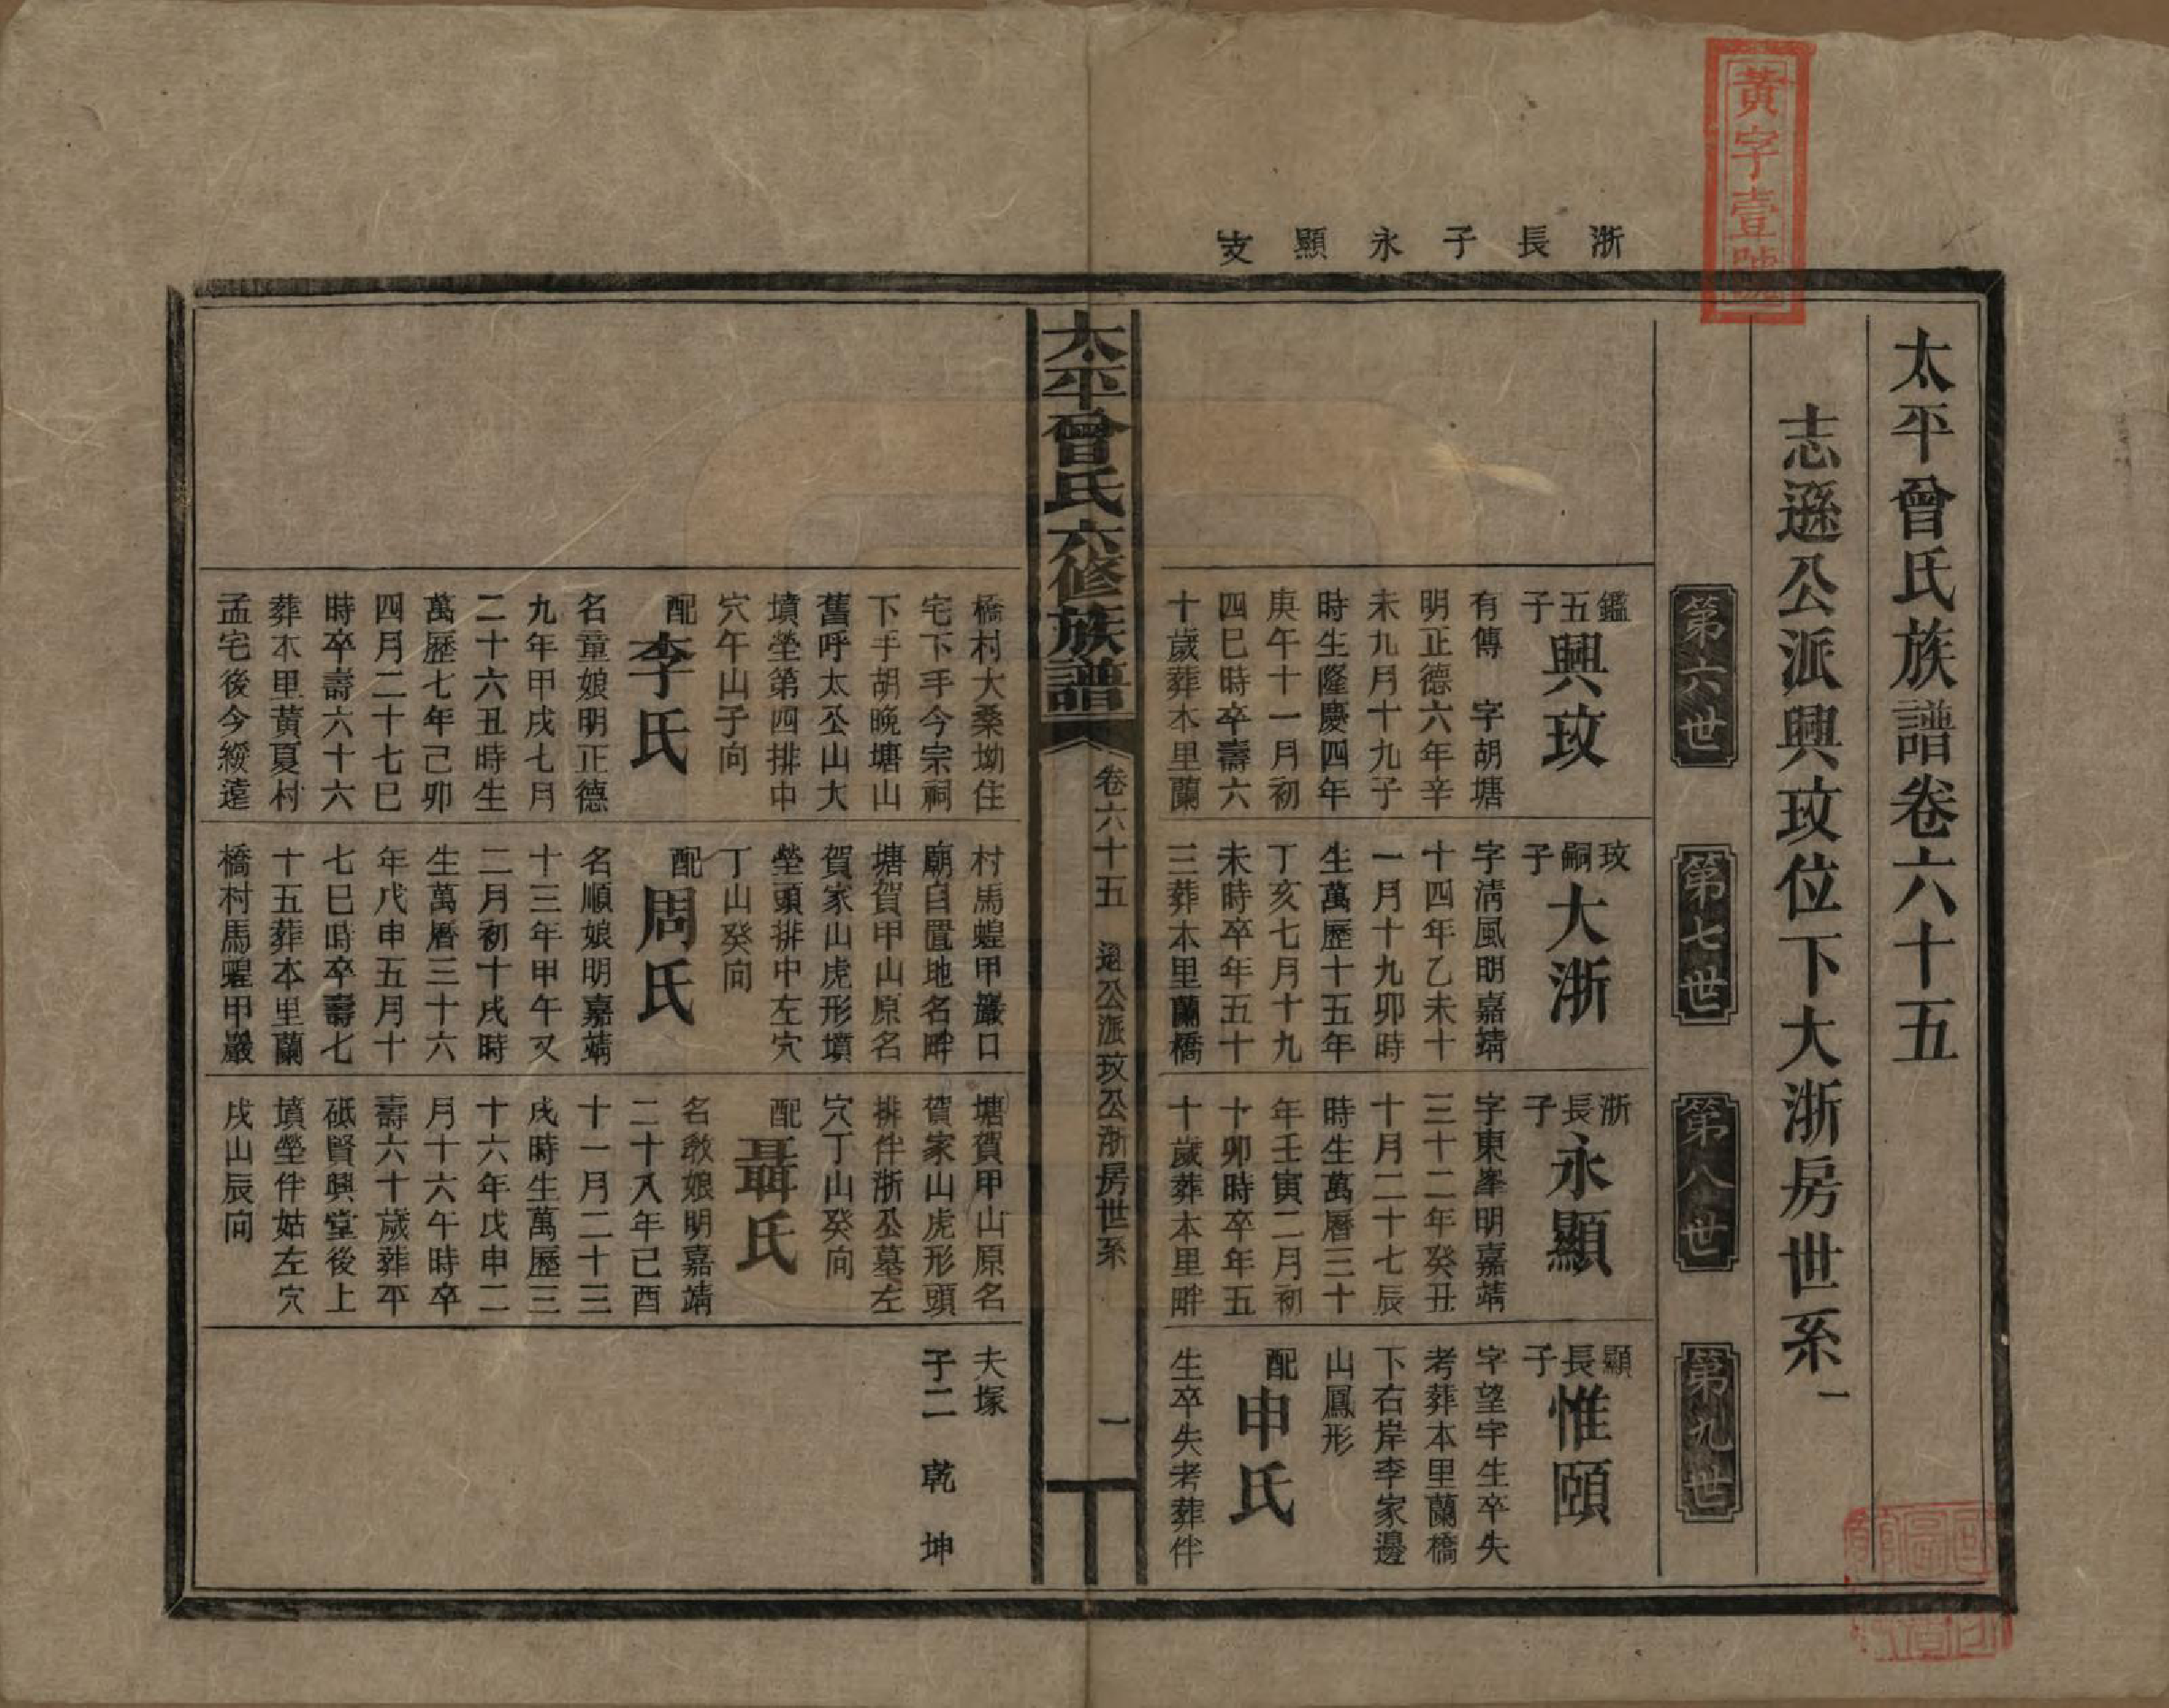 黃字壹號
浙長子永顯支
太平曾氏族譜卷六十五
志遜公派興玟位下大浙房世系一
第六世
第七世
第八世
第九世
鑑五子
興玟
有傳　字胡塘
明正德六年辛
未九月十九子
時生隆慶四年
庚午十一月初
四巳時卒壽六
十歲葬本里蘭
玟嗣子
大浙
字淸風明嘉靖
十四年乙未十
一月十九卯時
生萬歷十五年
丁亥七月十九
未時卒年五十
三葬本里蘭橋
浙長子
永顯
字東峯明嘉靖
三十二年癸丑
十月二十七辰
時生萬曆三十
年壬寅二月初
十卯時卒年五
十歲葬本里畔
顯長子
惟頤
字望宇生卒失
考葬本里蘭橋
下右岸李家邊
山鳳形
配
申氏
生卒失考葬伴
太平曾氏六修族譜
卷六十五
遜公派玟公浙房世系
一
橋村大桑坳住
宅下手今宗祠
下手胡晚塘山
舊呼太公山大
墳塋第四排中
穴午山子向
配
李氏
名童娘明正德
九年甲戌七月
二十六丑時生
萬歷七年己卯
四月二十七巳
時卒壽六十六
葬本里黃夏村
孟宅後今綏遠
村馬蝗甲巖口
廟自置地名畔
塘賀甲山原名
賀家山虎形墳
塋頭排中左穴
丁山癸向
配
周氏
名順娘明嘉靖
十三年甲午又
二月初十戌時
生萬曆三十六
年戊申五月十
七巳時卒壽七
十五葬本里蘭
橋村馬蝗甲巖
塘賀甲山原名
賀家山虎形頭
排伴浙公墓左
穴丁山癸向
配
聶氏
名敢娘明嘉靖
二十八年己酉
十一月二十三
戌時生萬歷三
十六年戊申二
月十六午時卒
壽六十歲葬平
砥賢興堂後上
墳塋伴姑左穴
戌山辰向
夫塚
子二　乾　坤